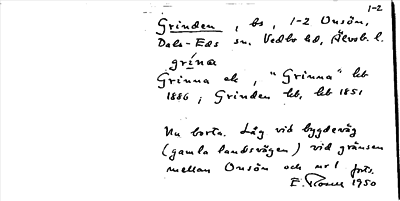 1-2
Grinden, bs, 1-2 Onsön,
Dals-Eds sn. Vedbo hd, Älvsb. l.
grína
Grinna ek, "Grinna" hb
1886; Grinden hb, hb 1851
Nu borta. Låg vid bygdeväg
(gamla landsvägen) vid gränsen
mellan Onsön och nr 1 forts.
E. Rosell 1950